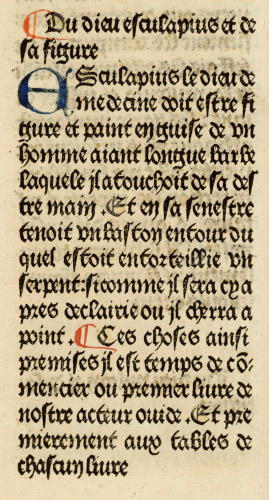 ¶ Du dieu esculapius et de
sa figure
ESculapius le dieu de
medecine doit estre fi
gure et paint en guise de vn
homme aiant longue barbe
laquele jl atouchoit de sa des
tre main . Et en sa senestre
tenoit vn baston entour du
quel estoit entorteillie vn
serpent: si comme jl sera cy a
pres declairie ou jl cherra a
point . ¶ Ces choses ainsi
premises jl est temps de cō-
mencier ou premier liure de
nostre acteur ouide . Et pre
mierement aux tables de
chascun liure